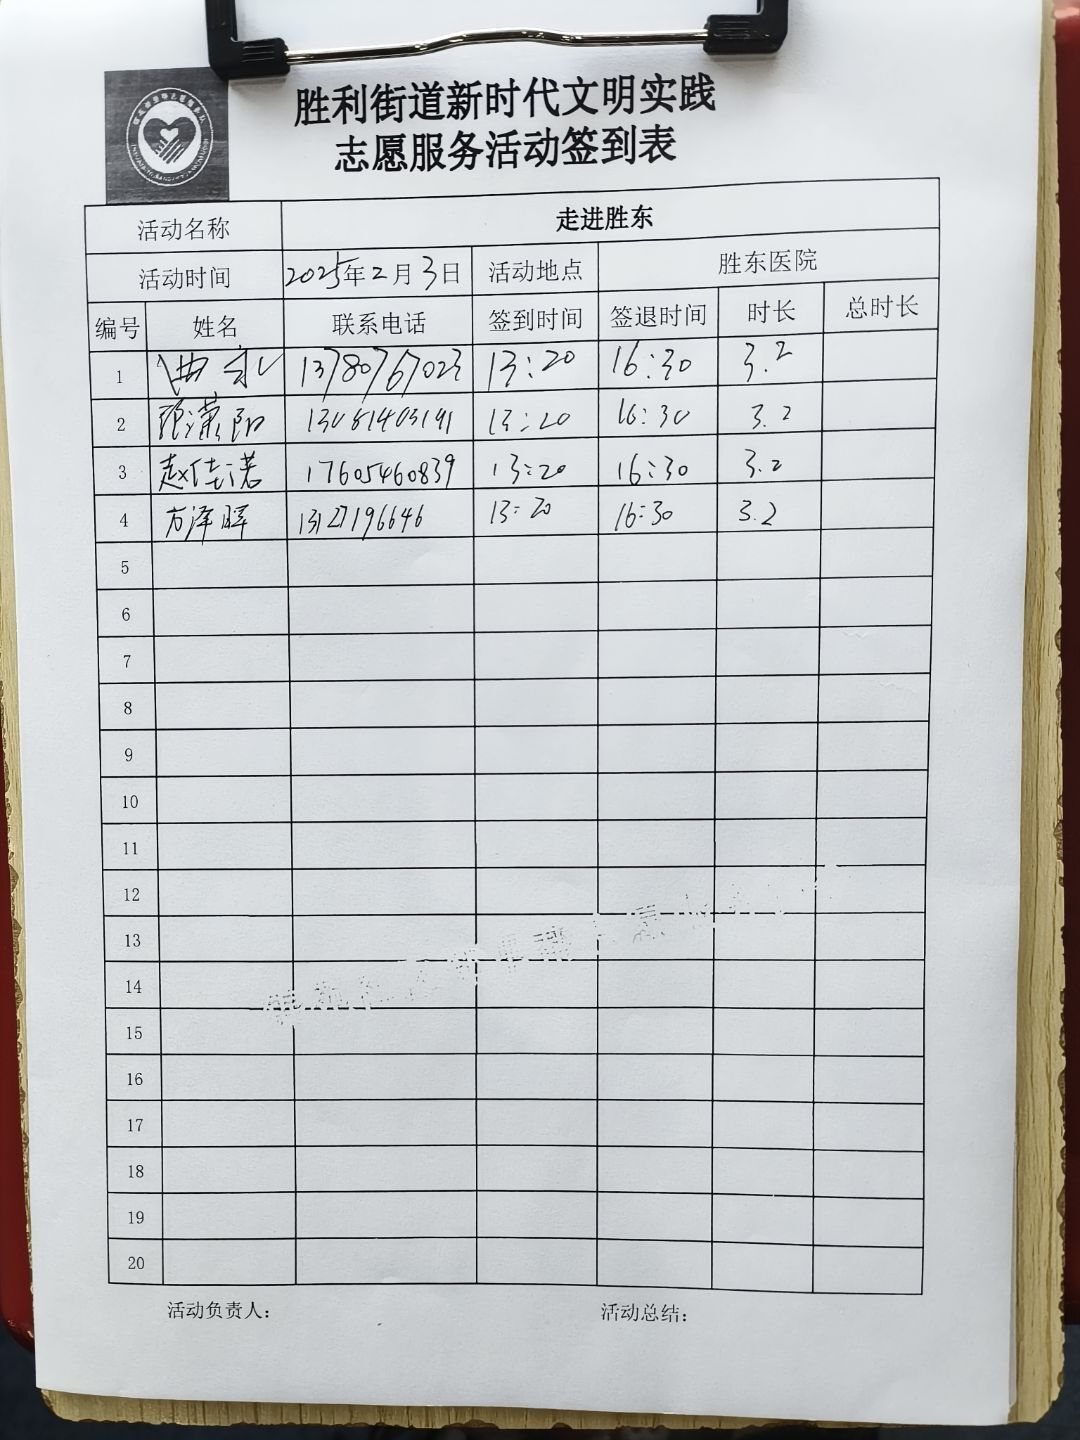 胜利街道新时代文明实践
志愿服务活动签到表
活动名称 走进胜东
活动时间 2025年2月3日 活动地点 胜东医院
编号 姓名 联系电话 签到时间 签退时间 时长 总时长
1 13780767023 13:20 16:30 3.2
2 张潇阳 13:20 16:30 3.2
3 赵佳诺 17605460839 13:20 16:30 3.2
4 方泽晖 13127196646 13:20 16:30 3.2
5
6
7
8
9
10
11
12
13
14
15
16
17
18
19
20
活动负责人: 活动总结: